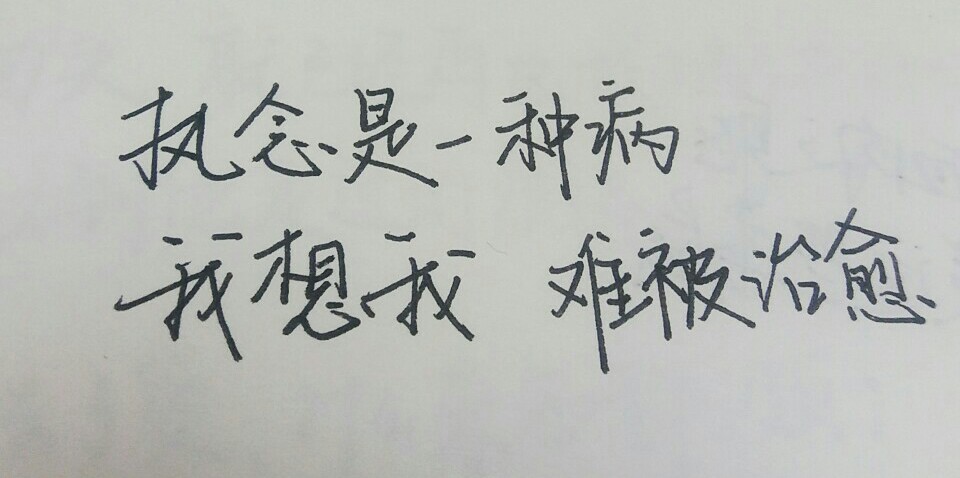 执念是一种病
我想我 难被治愈